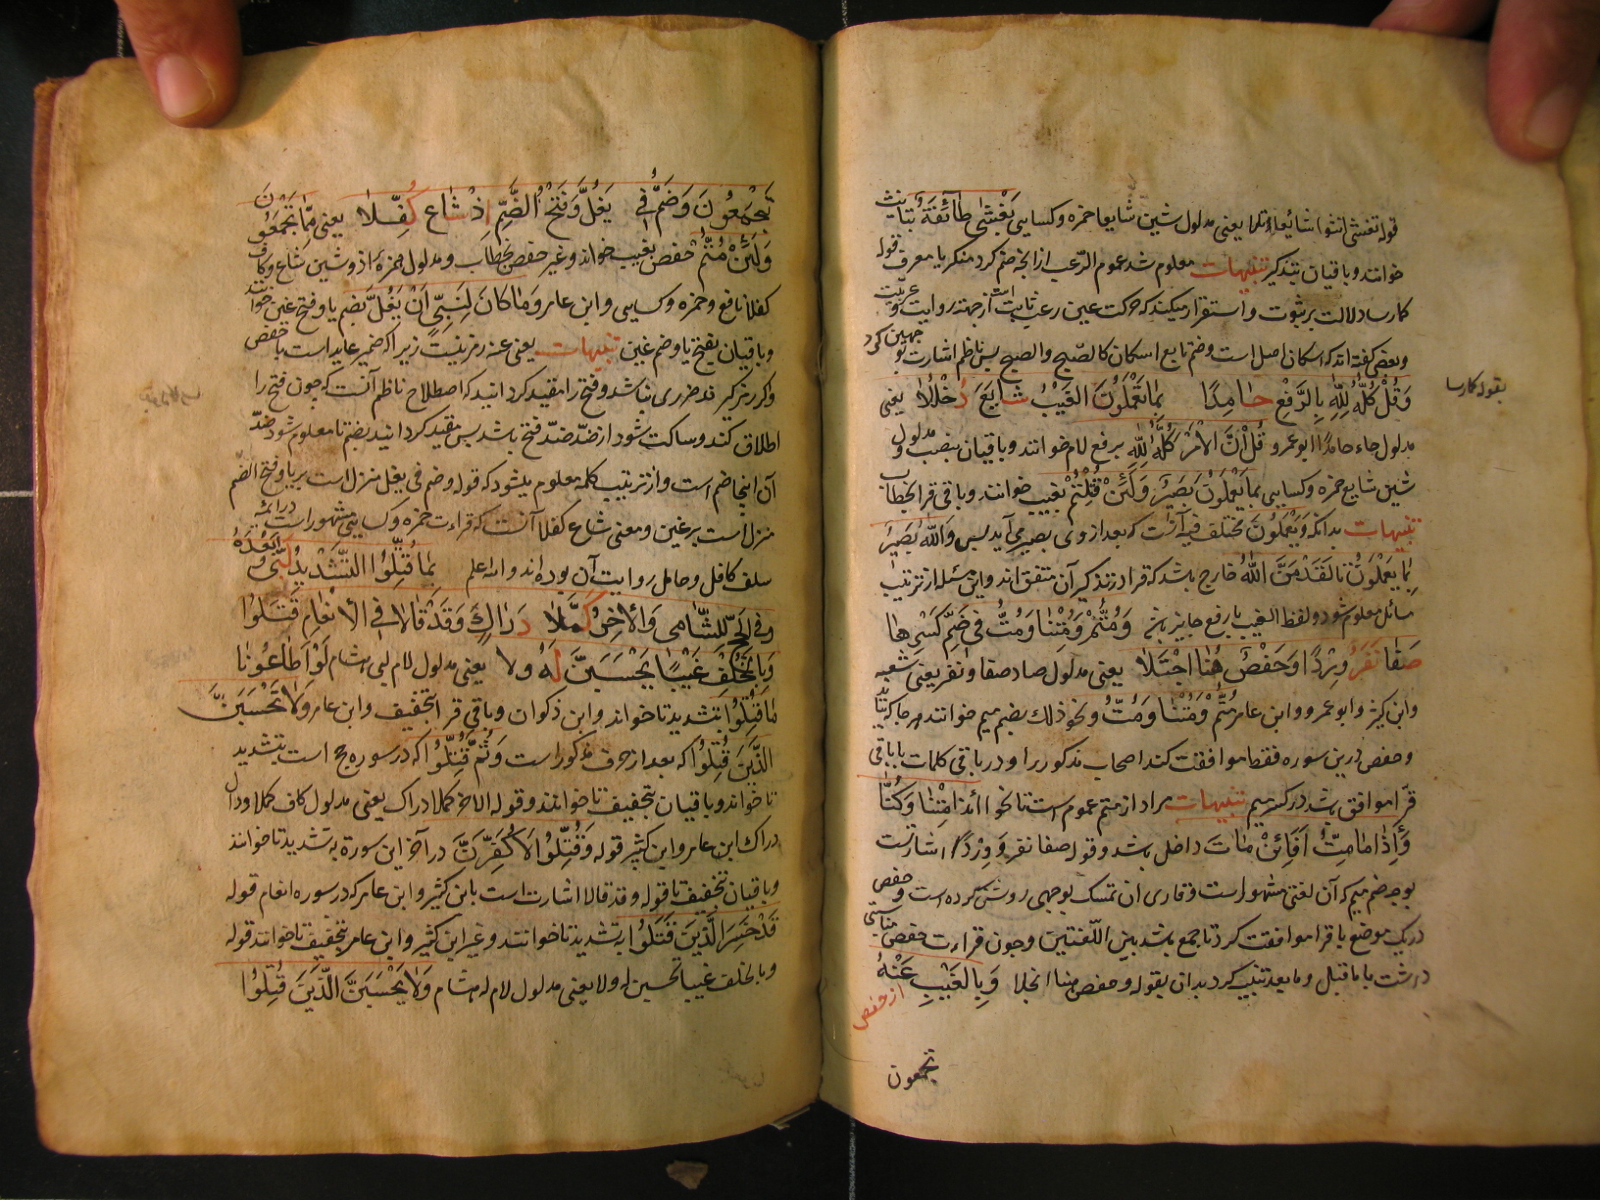 قوله تغشی انثوا شائعا تلا یعنی مدلول شین شایعا حمزه وکسایی تَغْشٰی طَآئِفَةً بتانیث
خوانند وباقیان بتذکیر تنبیهات معلوم شد عموم الرّعب از آنجه ضم کرد منکر یا معرف قوله
کما رسا دلالت بر ثبوت واستقرار میکند که حرکت عین رعب ثابت است از جهة روایت وعربیّت
وبعضی گفته اند که اسکان اصل است وضم تابع اسکان کالصّبح والصبح پس ناظم اشارت بو جهین کرد
بقوله کما رسا
وَقُلْ کُلُّهُ لِلّٰهِ بِالرَّفْعِ حَامِدًا بِمَا تَعْمَلُوْنَ الغَیْبُ شَایَعَ دُخْلُلَا یعنی
مدلول حاء حامدًا ابو عمرو قُلْ اِنَّ الْاَمْرَ کُلُّهُ لِلّٰهِ برفع لام خوانند وباقیان بنصب ومدلول
شین شایع حمزه وکسایی بِمَا یَعْمَلُوْنَ بَصِیْرٌ وَلَئِنْ قُتِلْتُمْ بغیب خوانند وباقی قرا بخطاب
تنبیهات بدانکه وَیَعْمَلُوْنَ مختلف فیه آنست که بعد از وی بصیر می آید پس وَاللّٰهُ بَصِیْرٌ
بِمَا یَعْمَلُوْنَ با لَقَدْ مَنَّ اللّٰهُ خارج باشد که قرا در تذکیر آن متفق اند واین مسئله از ترتیب
مسائل معلوم شود ولفظ الغیب بارفع جایز بانه وَمُتُّمْ وَمُتْنَا وَمُتُّ فِی ضَمِّ کَسْرِهَا
صَفَا نَفَرٌ وِرْدًا وَحَفْصٌ هُنَا اجْتَلَا یعنی مدلول صاد صفا ونفر یعنی شعبه
وابن کثیر وابو عمرو وابن عامر مُتُّمْ وَمُتْنَا وَمُتُّ ونحو ذلك بضم میم خوانند هر جا که آید
وحفص درین سوره فقط موافقت کند اصحاب مذکور را ودر باقی کلمات با باقی
قرّا موافق باشد در کسر میم تنبیهات مراد از متم عموم است تا نحو اائذا مِتْنَا وَکُنَّا
وَءَاِذَا مَامِتُّ اَفَاِئِنْ مَاتَ داخل باشد وقوله صفا نفر وَوِرْدًا اشارتست
بوجه ضم میم که آن لغتی مشهور است وقاری ان تمسك بوجهی روشن کرده است وحفص
در یک موضع با قرا موافقت کرد تا جمع باشد بین اللّغتین وجون قراءت حفص مناسبتی
داشت با ما قبل وما بعد تنبیه کرد بدان بقوله وحفص هنا اجتلا وَبِالْغَیْبِ عَنْهُ
از حفص
تجمعون
تَجْمَعُوْنَ وَضَمٌّ فِی یَغُلَّ وَفَتْحُ الضَّمِّ اِذْ شَاعَ کُفِّلَا یعنی مِمَّا تَجْمَعُوْنَ
وَلَئِنْ مُتُّمْ حفص بغیب خواند وغیر حفص بخطاب ومدلول همزهٔ اذ وشین شاع وکاف
کفلا نافع وحمزه وکسایی وابن عامر وَمَا کَانَ لِنَبِیٍّ اَنْ یَغُلَّ بضم یا وفتح غین خوانند
وباقیان بفتح یا وضم غین تنبیهات یعنی عنه رمز نیست زیرا که ضمیر عاید است با حفص
واکر رمز کیرند ضرری نباشد وفتح را مقید کردانید که اصطلاح ناظم آنست که جون فتح را
اطلاق کند وساکت شود از ضدّ ضدّ فتح باشد پس مقید کردانید بضم تا معلوم شود ضدّ
آن اینجا ضم است واز ترتیب کلمه معلوم میشود که قوله وضم فی یغل منزل است بر یا وفتح الضّم
منزل است بر غین ومعنی شاع کفلا آنست که قراءت حمزه وکسایی مشهور است در ائمه
سلف کافل وحامل روایت آن بوده اند والله اعلم بِمَا قُتِّلُوا التَّشْدِیْدُ لَبّٰی وَبَعْدَهُ
وَفِی الْحَجِّ لِلشَّامِی وَالْاٰخِرُ کَمَّلَا دَرَاكِ وَقَدْ قَالَا فِی الْاَنْعَامِ قَتَّلُوا
وَبِالْخُلْفِ غَیْبًا یَحْسَبَنَّ لَهُ وَلَا یعنی مدلول لام لبی هشام لَوْ اَطَاعُوْنَا
مَا قُتِلُوا بتشدید تا خواند وابن ذکوان وباقی قرا بتخفیف وابن عامر وَلَا تَحْسَبَنَّ
الَّذِیْنَ قُتِلُوا که بعد از حرف مذکور است وَثُمَّ قُتِلُوا که در سوره حج است بتشدید
تا خواند وباقیان بتخفیف تا خوانند وقوله الاخر کملا دراك یعنی مدلول کاف کملا ودال
دراك ابن عامر وابن کثیر قوله وَقُتِّلُوا لَاُکَفِّرَنَّ در آخر این سورة بتشدید تا خوانند
وباقیان بتخفیف تا قوله وقد قالا اشارت است بابن کثیر وابن عامر که در سوره انعام قوله
قَدْ خَسِرَ الَّذِیْنَ قَتَلُوا بتشدید تا خوانند وغیر ابن کثیر وابن عامر بتخفیف تا خوانند قوله
وبالخلف غیبا یحسبن له ولا یعنی مدلول لام له هشام وَلَا یَحْسَبَنَّ الَّذِیْنَ قُتِلُوْا